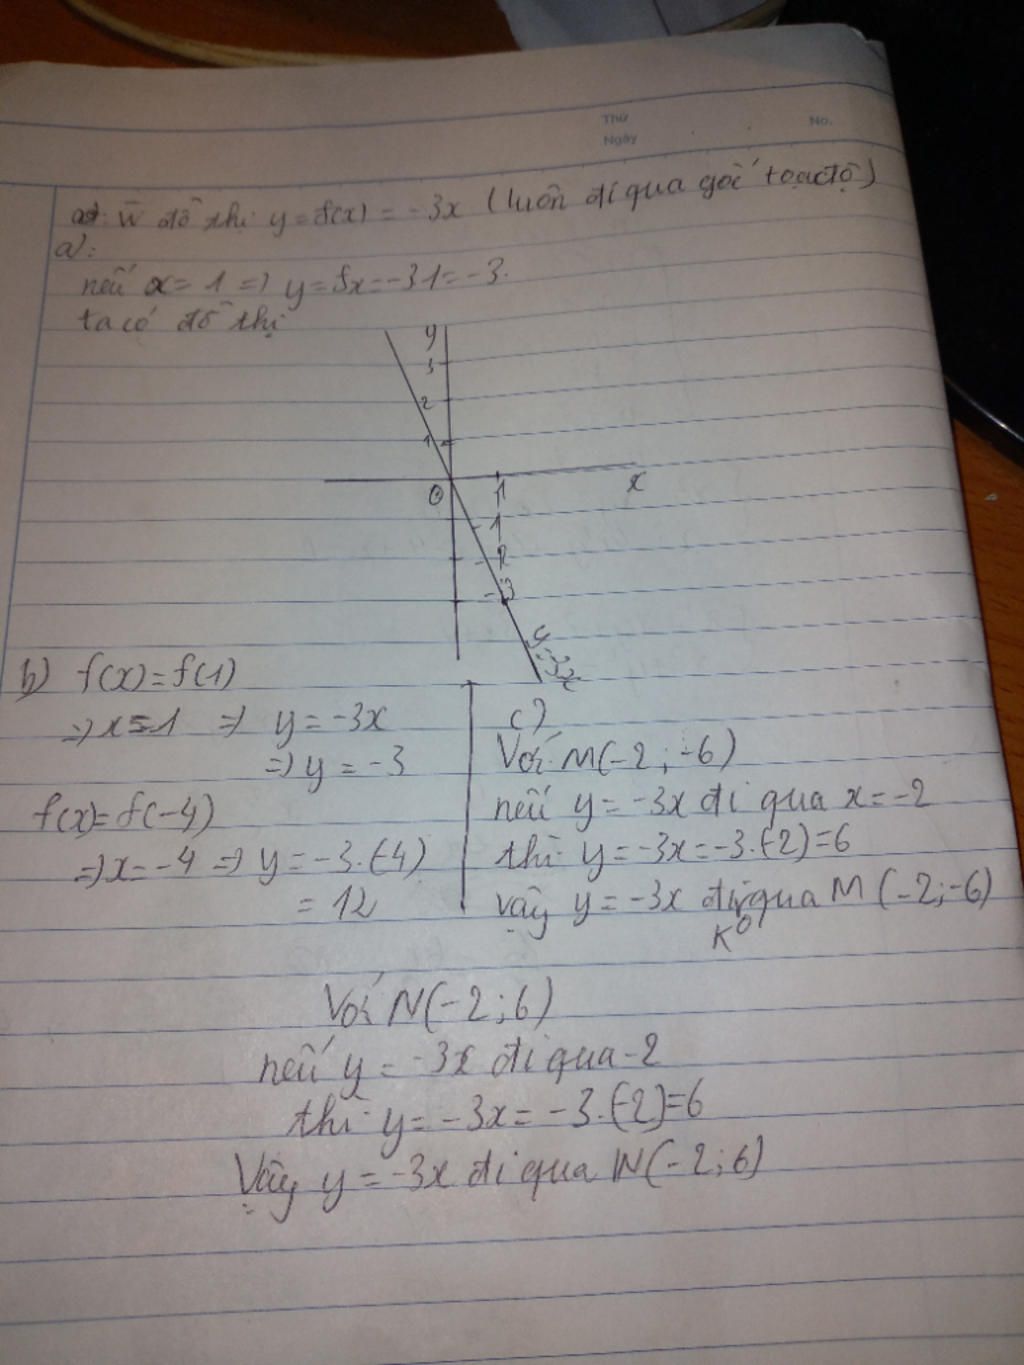 Thứ
Ngày
No.
đồ thị y = f(x) = -3x (luôn đi qua gốc toạ độ)
a):
nếu x = 1 => y = fx = -3.1 = -3.
ta có đồ thị
y
3
2
1
O
1
x
-1
-2
-3
y=-3x
b) f(x) = f(1)
=> x = 1 => y = -3x
=> y = -3
f(x) = f(-4)
=> x = -4 => y = -3.(-4)
= 12
c)
Với M(-2; -6)
nếu y = -3x đi qua x = -2
thì y = -3x = -3.(-2) = 6
vậy y = -3x K° đi qua M (-2; -6)
Với N(-2; 6)
nếu y = -3x đi qua -2
thì y = -3x = -3.(-2) = 6
Vậy y = -3x đi qua N(-2; 6)